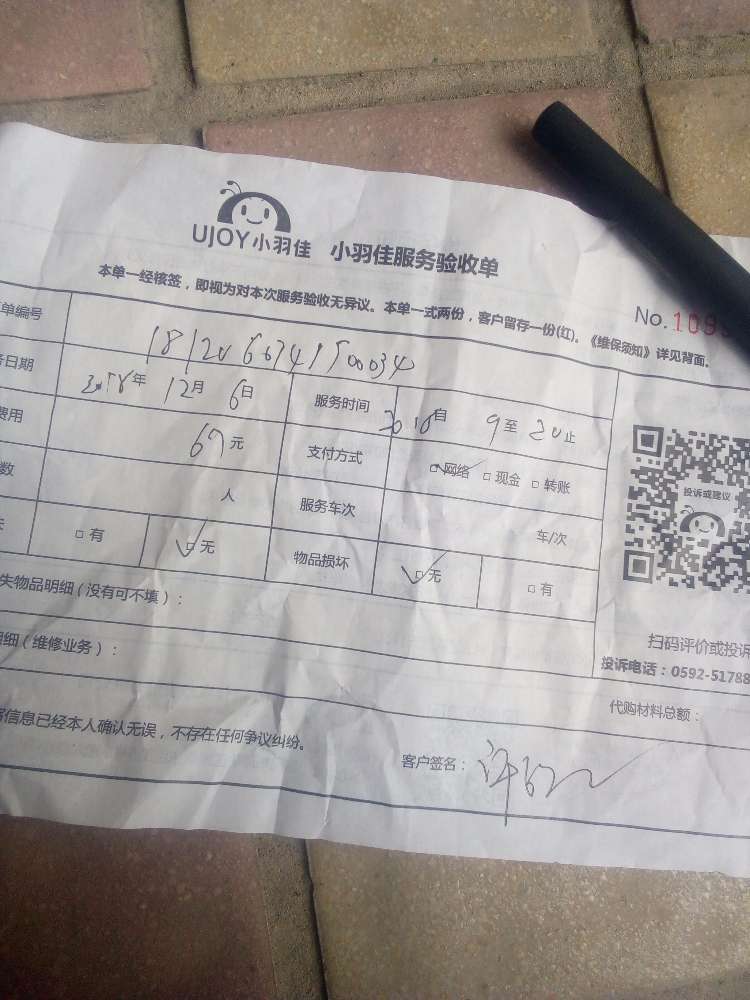 UJOY小羽佳 小羽佳服务验收单
本单一经核签，即视为对本次服务验收无异议。本单一式两份，客户留存一份(红)。《维保须知》详见背面。
No.109
单编号
日期 年 12月 6日 服务时间 自 9至 止
费用 元 支付方式 □网络 □现金 □转账
数 人 服务车次 车/次
□有 □无 物品损坏 □无 □有
投诉或建议
失物品明细（没有可不填）：
细（维修业务）：
扫码评价或投诉
投诉电话：0592-51788
代购材料总额：
信息已经本人确认无误，不存在任何争议纠纷。
客户签名：